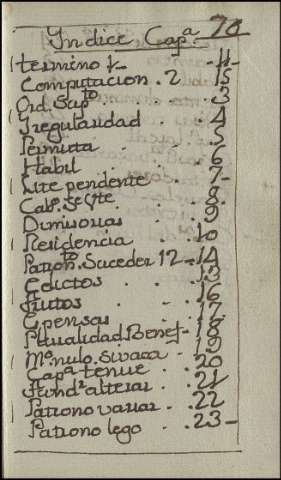 70
Yndice Cap.ª
termino f - 11 -
Computacion . 2 15
Ord. Sup.to . . 3
Yrregularidad . . 4
Permuta . . . 5
Habil . . . 6
Lite pendente . . 7 -
Cab.º Se Vte . . 8
Dimisorias . . 9
Residencia . . 10
Patron.to Suceder 12 - 14
Edictos . . . 13
Frutos . . . 16
Expensas . . . 17
Pluralidad Benef - 18
M.º nulo. Si vaca - 19
Cap.ª tenue . . 20
Fund.r alterar . 21
Patrono variar . . 22
Patrono lego . . 23 -